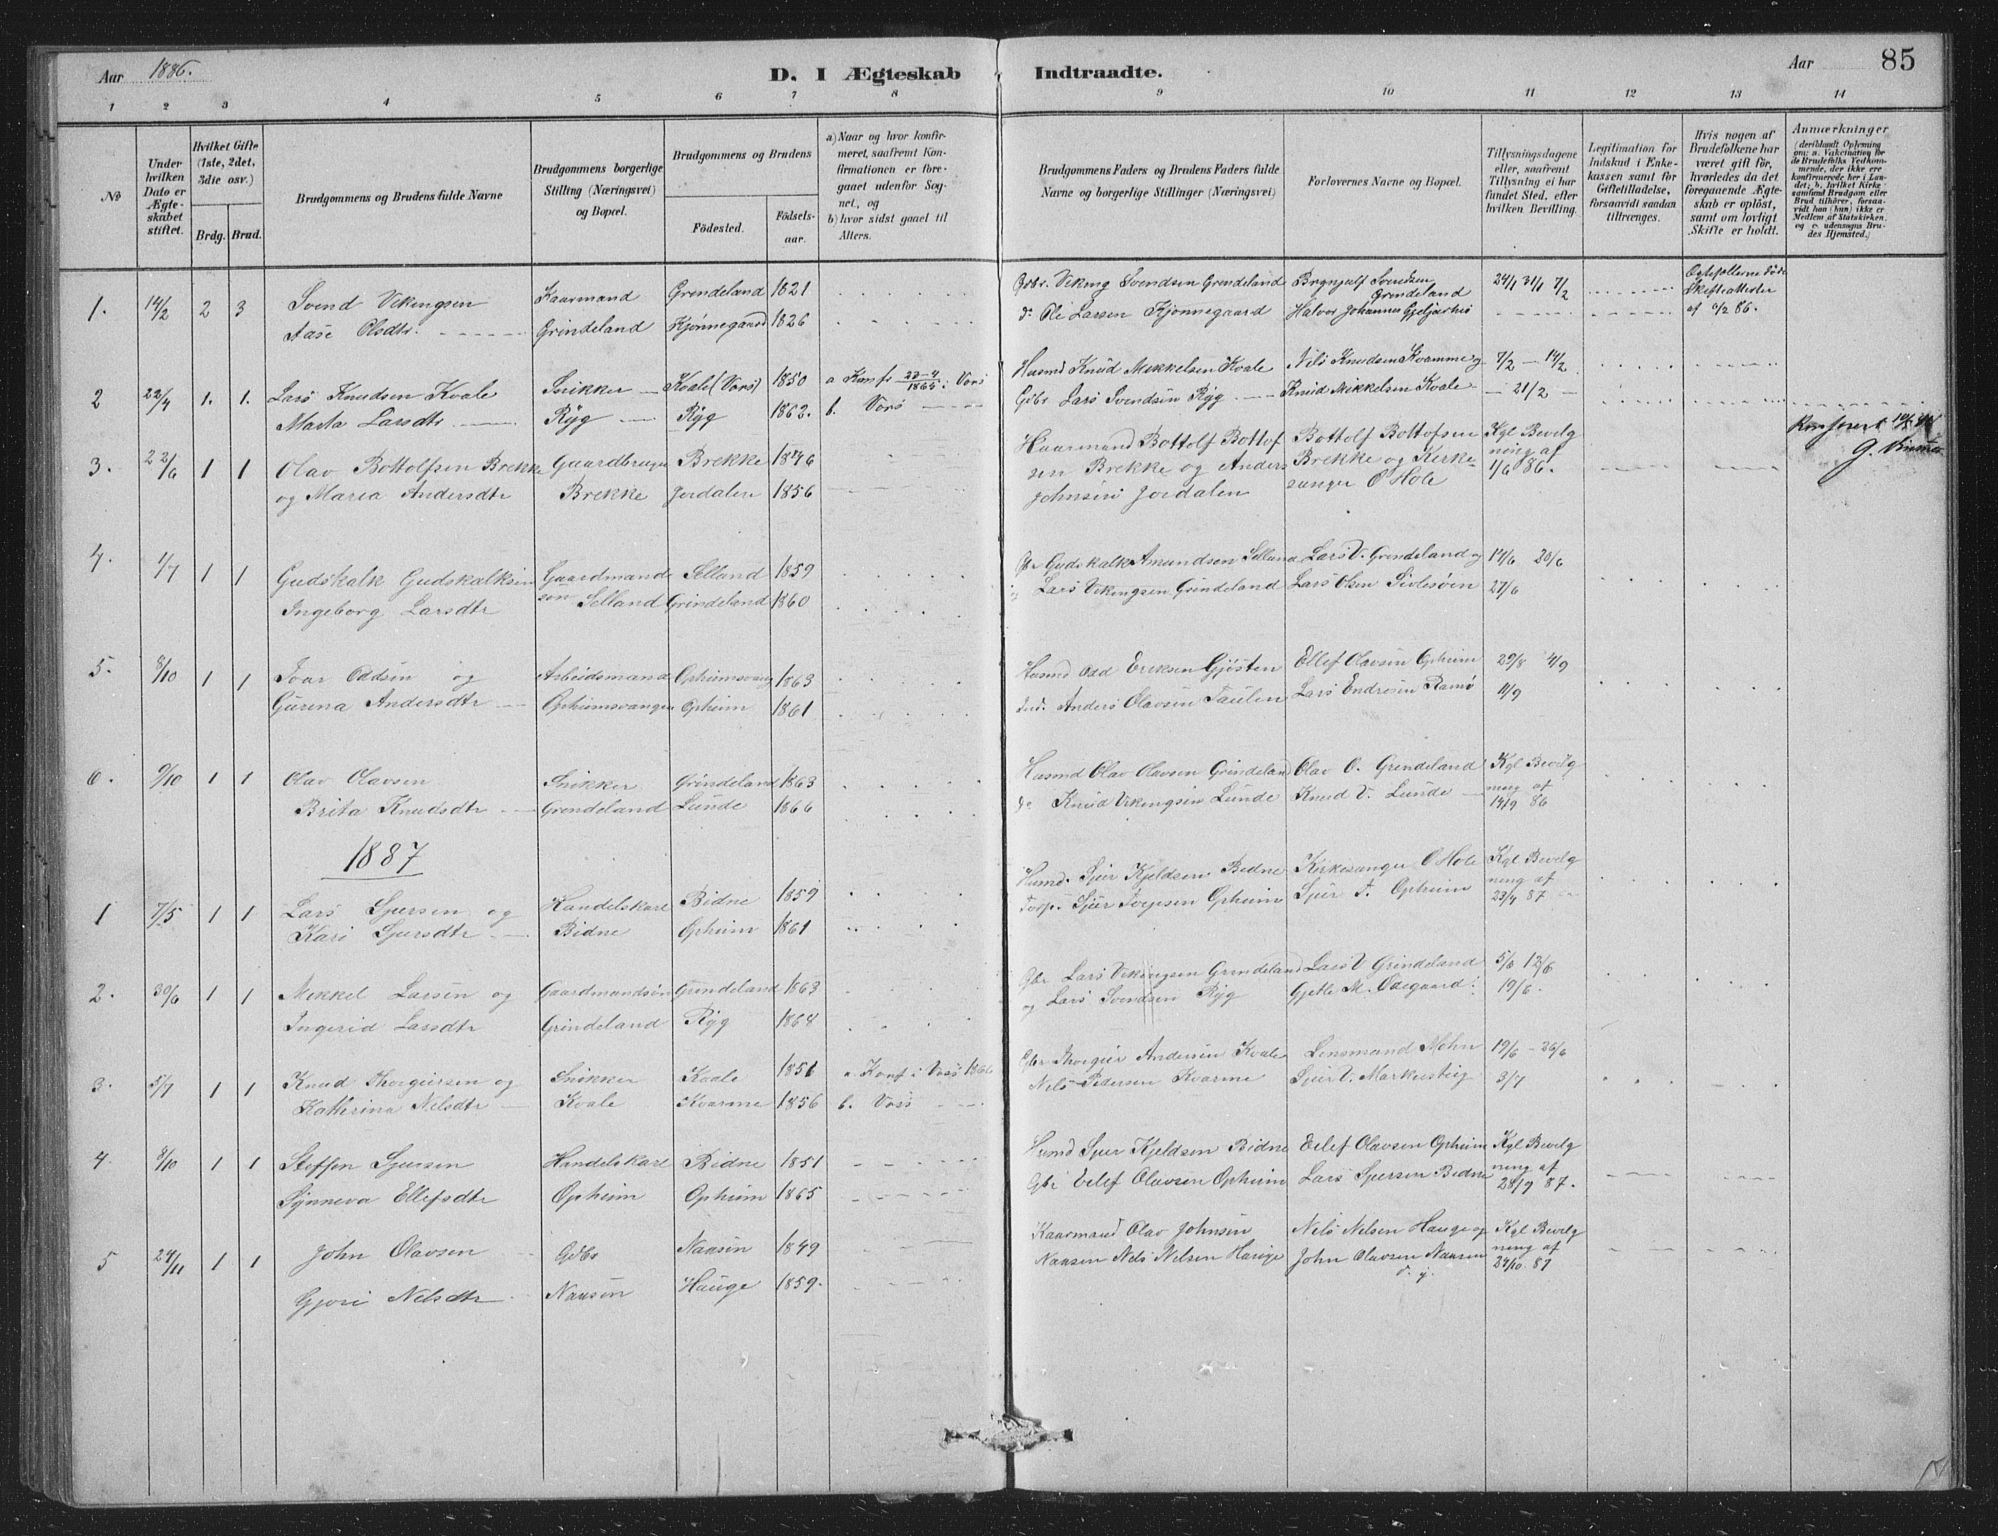 Aar 1886.
D. I Ægteskab Indtraadte.
Aar 85
1 2 3 4 5 6 7 8 9 10 11 12 13 14
№
Under hvilken Dato er Ægteskabet stiftet.
Hvilket Gifte (1ste, 2det, 3die osv.)
Brdg. Brud.
Brudgommens og Brudens fulde Navne
Brudgommens borgerlige Stilling (Næringsvei) og Bopæl.
Brudgommens og Brudens
Födested.
Födselsaar.
a) Naar og hvor konfirmeret, saafremt Konfirmationen er foregaaet udenfor Sognet, og
b) hvor sidst gaaet til Alters.
Brudgommens Faders og Brudens Faders fulde Navne og borgerlige Stillinger (Næringsvei)
Forlovernes Navne og Bopæl.
Tillysningsdagene eller, saafremt Tillysning ei har fundet Sted, efter hvilken Bevilling.
Legitimation for Indskud i Enkekassen samt for Giftetilladelse, forsaavidt saadan tiltrænges.
Hvis nogen af Brudefolkene har været gift för, hvorledes da det foregaaende Ægteskab er oplöst, samt om lovligt Skifte er holdt.
Anmærkninger
1. 14/2 2 3 Svend Vikingsen Kaarmand Grindeland 1821 Gbr. Viking Svendsen Grindeland Brynjulf Svendsen Grindeland 24/1 31/1 7/2
Aase Olsdtr. Grindeland Kjønnegaard 1826 do Ole Larsen Kjønnegaard Halvor Johannes
af 6/2 86.
2 22/4 1. 1. Lars Knudsen Kvale Snikker Kvale (Vors) 1850 a Konf 23-4/1865 i Vors Husmd Knud Mikkelsen Kvale Nils Knudsen Kvamme og 7/2 — 14/2
Marta Larsdtr. Ryg Ryg 1862. b. Vors Gbr Lars Svendsen Ryg Knud Mikkelsen Kvale — 21/2 —
3. 22/6 1 1 Olav Bottolfsen Brekke Gaardbruger Brekke 1846 Kaarmand Bottolf Bottolfsen Brekke og Anders Johnsen Jordalen Bottolf Bottolfsen Brekke og Kirkesanger O Hole Kgl Bevilgning af 1/6 86.
og Maria Andersdtr Brekke Jordalen 1856
4. 1/7 1 1 Gudskalk Gudskalksen Gaardmandssøn Selland 1859 Gbr Gudskalk Amundsen Selland Lars V. Grindeland og 14/6 20/6
Ingeborg Larsdtr Selland Grindeland 1860 og Lars Vikingsen Grindeland Lars Olsen 27/6
5. 8/10 1 1 Ivar Oddsen og Arbeidsmand Opheimsvang 1863 Husmd Odd Eriksen Gjøsten Ellef Olavsen Opheim 29/8 4/9
Gurina Andersdtr Opheimsvangen Opheim 1861 Ind. Anders Olavsen Taulen Lars Endresen Ramsø 11/9
6. 9/10 1 1 Olav Olavsen Snikker Grindeland 1863 Husmd Olav Olavsen Grindeland Olav O. Grindeland Kgl Bevilgning af
Brita Knudsdtr Grindeland Lunde 1866 do Knud Vikingsen Lunde Knud V. Lunde 14/9 86
1887
1 7/5 1 1 Lars Sjursen og Handelskarl Bidne 1859 Husmd. Sjur Kjeldsen Bidne Kirkesanger O Hole Kgl Bevilgning af
Kari Sjursdtr Bidne Opheim 1861 Sjur Opheim Sjur T. Opheim 23/4 87
2. 30/6 1 1 Mikkel Larsen og Gaardmandssøn Grindeland 1863 Gbr Lars Vikingsen Grindeland Lars V Grindeland 5/6 12/6
Ingerid Larsdtr Grindeland Ryg 1864 og Lars Svendsen Ryg Gjetle M. Ødegaard. 19/6.
3. 5/7 1 1 Knud Thorgiersen og Snikker Kvale 1851 a. Konf i Vors 1866 Gbr Thorgier Andersen Kvale Lensmand Mohn 19/6 - 26/6
Katherina Nelsdtr Kvale Kvamme 1856 b. Vors Nels Pedersen Kvamme Sjur V. 3/7
4. 8/10 1 1 Steffen Sjursen Handelskarl Bidne 1851 Husmd Sjur Kjeldsen Bidne Eilef Olavsen Opheim Kgl Bevilgning af
Synneva Ellefsdtr Opheim Opheim 1865 Gbr Eilef Olavsen Opheim Lars Sjursen Bidne 28/9 87.
5 24/11 1 1 John Olavsen Gdbr Naasen 1849 Kaarmand Olav Johnsen Nils Nelsen Hauge og Kgl Bevilgning af
Gjori Nelsdtr Naasen Hauge 1859. Naasen Nels Nelsen Hauge John Olavsen Naasen d. y. 24/10 87